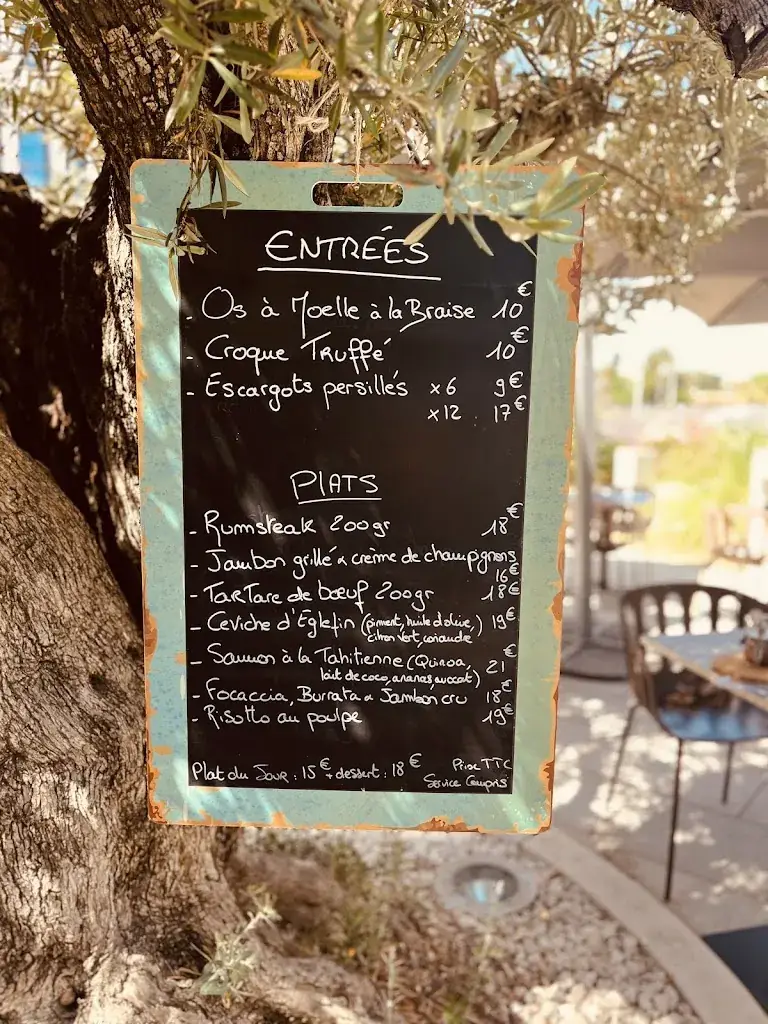 ENTRÉES
- Os à Moelle à la Braise 10€
- Croque Truffé 10€
- Escargots persillés x6 9€
x12 . 17€
PLATS
- Rumsteak 200gr 18€
- Jambon grillé & crème de champignons
16€
- TARTARE de bœuf 200gr 18€
- Ceviche d'Eglefin (piment, huile d'olive,) 19€
citron vert, coriandre
- Saumon à la Tahitienne (Quinoa, 21€
lait de coco, ananas, avocat)
- Focaccia, Burrata & Jambon cru 18€
- Risotto au poulpe 19€
Plat du Jour : 15€ + dessert : 18€ Prix TTC
Service Compris